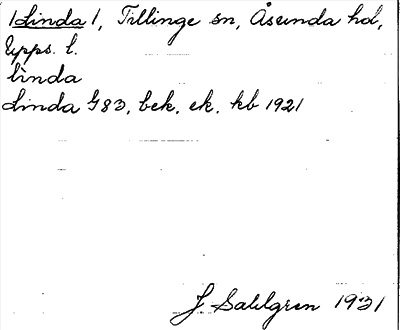 /Linda/, Tillinge sn, Åsunda hd,
Upps. l.
linda
Linda G83, bek. ek. kb 1921
J Sahlgren 1931